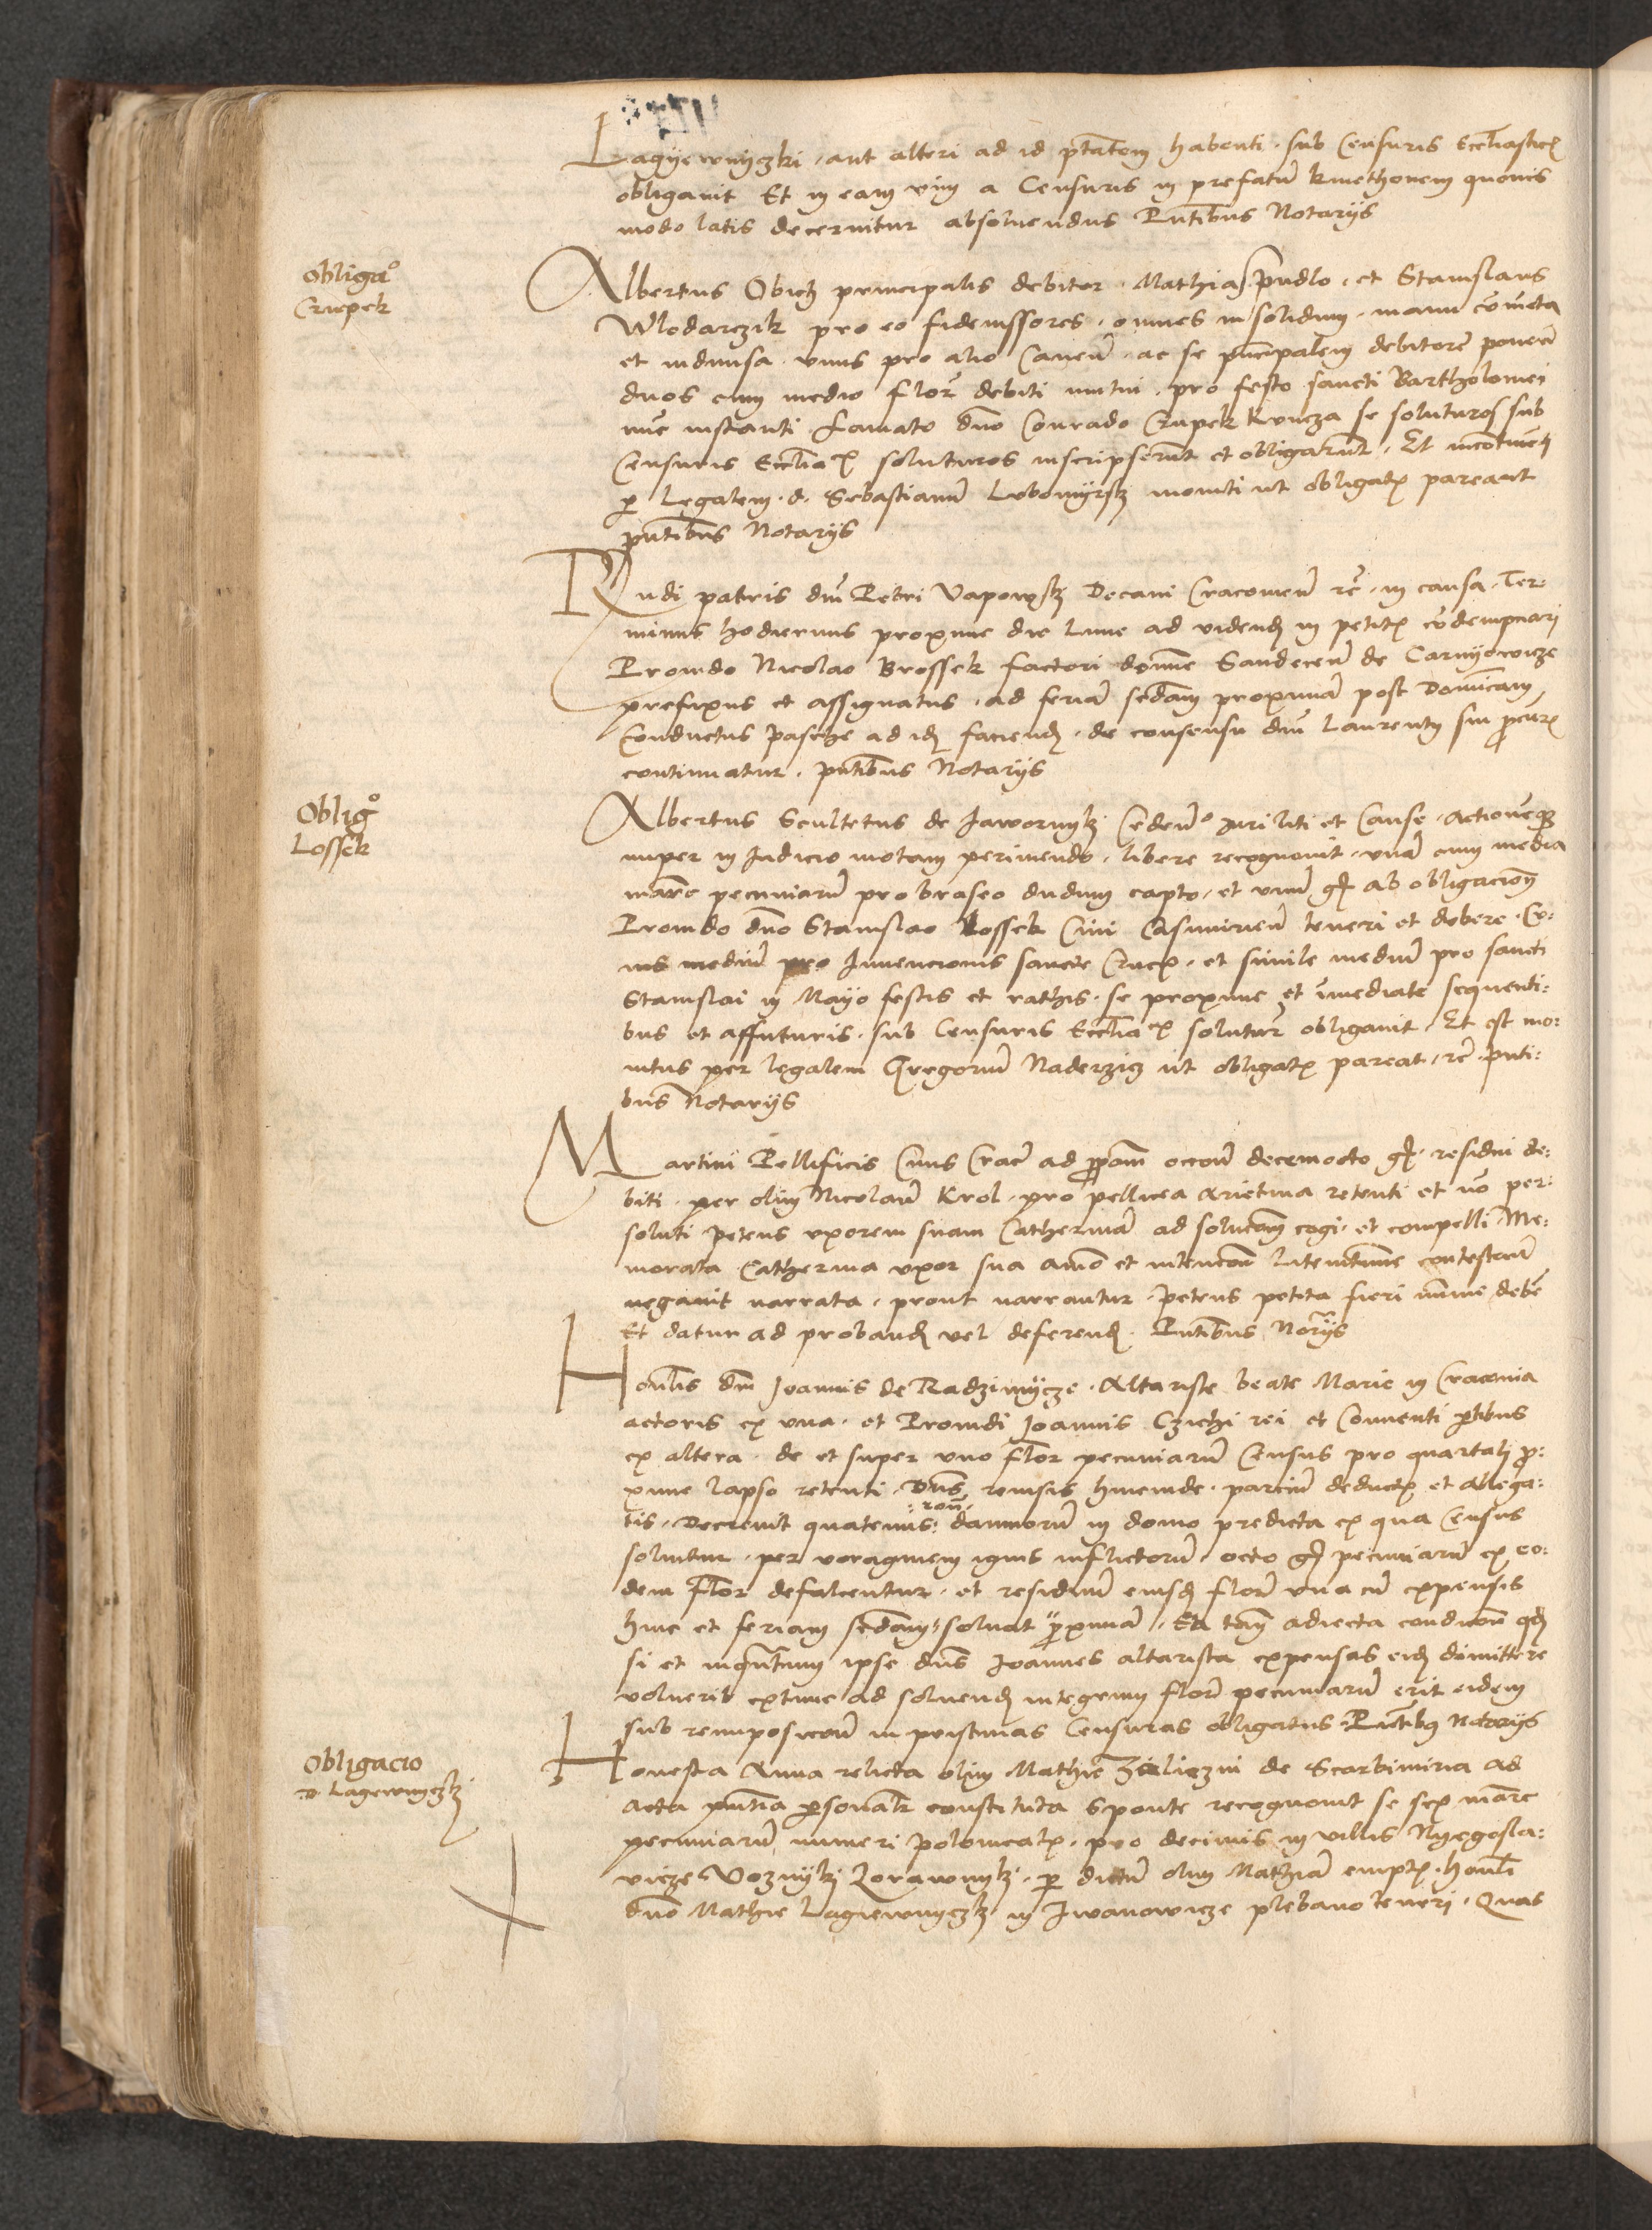 Lagyewnyczki, aut alteri ad id ptatem habenti, sub Censuris Eccliasticis
obligavit Et in eam vim a Censuris in prefatum kmethonem quovis
modo latis decernitur absoluendus Pntibus Notarijs
Obligao
Crupek
Albertus Obich principalis debitor, Mathias Pudlo, et Stanislaus
Wlodarczik pro eo fideiussores, omnes in solidum, manu coniuncta
et indiuisa vnus pro alio Cauen, ac se principalem debitore ponen
duos cum medio flor debiti mutui, pro festo sancti Bartholomei
nunc instanti famato dno Conrado Crupek kmcza se soluturos sub
Censuris Ecclia soluturos inscripserunt et obligarunt, Et incontinenti
per legalem d. Sebastianu Lubomyrsky moniti ut obligatis pareant
pntibus Notarijs
Rndi patris dni Petri Vapowsky Decani Cracouien re, in causa, Ter:
minus hodiernus proxime die lune ad videnda in petitis condempnari
Prouido Nicolao Brossek factori domine Sandecen de Carnyowicze
prefixus et assignatus, ad feriam secundam proximam post Dominicam
Conductus pasche ad idem faciendum, de consensu dni Laurenty sui procur
continuatur, pntibus Notarijs
Obligo
Lossek
Albertus Scultetus de Jawornyk Cedendo Juri liti et Cause, actionemque
nuper in Judicio motam perimendo, libere recognouit, vnam cum media
marc pecuniarum pro braseo dudum capto, et vnum gr ab obligacione
Prouido dno Stanislao Lossek Ciui Casimirien teneri et debere, Cu:
ius medium pro Inuencionis sancte Crucis, et simile medium pro sancti
Stanislai in Mayo festis et rathis, se proxime et immediate sequenti:
bus et affuturis, sub Censuris Ecclia soluturum obligauit, Et est mo:
nitus per legalem Gregorium Naderzicz ut obligatis pareat, re pnti:
bus Notarijs
Martini Pellificis Ciuis Crac ad proposicionem decemocto gr, residui de:
biti, per olim Nicolaum Krol, pro pellicea arietina retenti et non per:
soluti petens vxorem suam Catherinam ad solucionem cogi, et compelli, Me:
morata Catherina vxor sua animo et intencione litem contestandi
negauit narrata, prout narrantur, petens petita fieri minime debere
Et datur ad probandum vel deferendum, Pntibus Notarijs
Honlis dni Joannis de Radzimycze, Altariste beate Marie in Cracouia
actoris ex vna, et Prouidi Joannis Czichi rei et Conuenti partibus
ex altera, de et super vno flor pecuniarum Census pro quartali pro:
xime lapso retenti, Dns, remissis hincinde, parcium deductis et allega:
tis, Decreuit quatenus: :racione: damnorum in domo predicta ex qua Census
soluitur, per voraginem ignis inflictorum, octo gr pecuniarum ex eo:
dem flor defalcentur, et residuum eiusdem floreni vna cum expensis
hinc et feriam secundam, soluat proximam, Et tamen adiecta condicione quod
si et inquantum ipse dns Joannes altarista expensas eidem dimittere
voluerit extunc ad soluendum integrum florenum pecuniarum erit eidem
sub reimposicione in pristinas Censuras obligatus, Pntibus Notarijs
Obligacio
d Lagewnyczky
Honesta Anna relicta olim Mathie de Scarbimiria ad
acta pntia personaliter constituta sponte recognouit se sex marc
pecuniarum numeri polonicalis, pro decimis in villis Nyegosla:
vicze Voznyky Zorawnyky, per dictum olim Mathiam emptis, honli
dno Mathie Lagiewnyczky in Jwanowicze plebano teneri, Quas